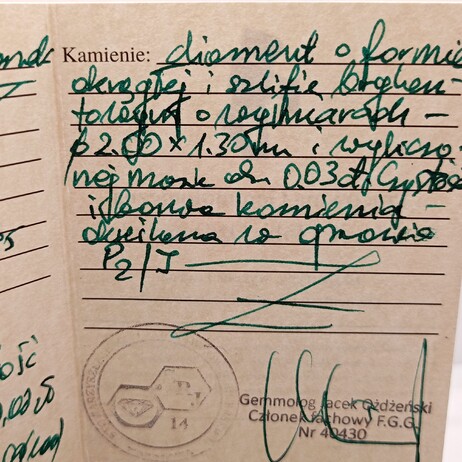 Kamienie: diament o formie
okrągłej i szlifie brylan-
towym o wymiarach -
ϕ 2.00 x 1.30mm i wyliczo-
nej masie ok. 0.03ct. Czystość
i barwa kamienia -
określona w oprawie
P2/J
14
Gemmolog Jacek Ożdżeński
Członek fachowy F.G.G.
Nr 40430